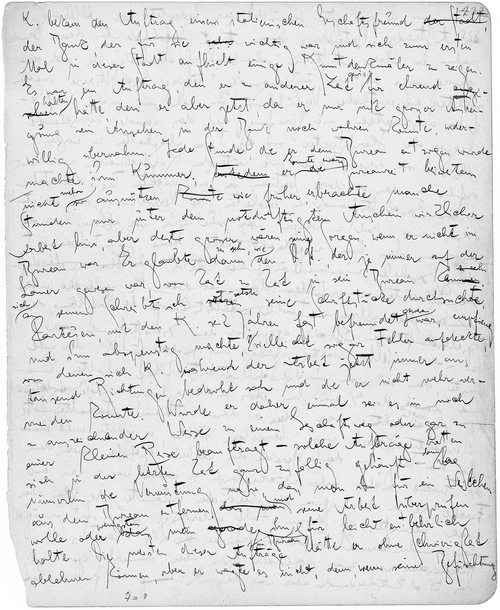 K. bekam den Auftrag einem italienischen Geschäftsfreund der Stadt,
der Bank der für sie sehr wichtig war und sich zum ersten
Mal in dieser Stadt aufhielt einige Kunstdenkmäler zu zeigen.
Es war ein Auftrag, den er zu anderer Zeit gewiß für ehrend
gehalten hätte den er aber jetzt, da er nur mit großer Anstren-
gung sein Ansehen in der Bank noch wahren konnte, wider-
willig übernahm. Jede Stunde die er dem Bureau entzogen wurde
machte ihm Kummer, er konnte zwar die Bureauzeit bei weitem
nicht mehr so ausnützen wie früher er brachte manche
Stunden nur unter dem notdürftigsten Anschein wirklicher
Arbeit hin, aber desto grösser waren seine Sorgen wenn er nicht im
Bureau war. Er glaubte dann zu sehn, wie der D.-St., der ja immer auf der
Lauer gewesen war von Zeit zu Zeit in sein Bureau kam
sich an seinen Schreibtisch setzte seine Schriftstücke durchsuchte
Parteien mit denen K. seit Jahren fast befreundet gewesen war, empfieng
und ihm abspenstig machte vielleicht sogar Fehler aufdeckte,
von denen sich K. während der Arbeit jetzt immer aus
tausend Richtungen bedroht sah und die er nicht mehr ver-
meiden konnte. Wurde er daher einmal sei es in noch
so auszeichnender Weise zu einem Geschäftsweg oder gar zu
einer kleinen Reise beauftragt – solche Aufträge hatten
sich in der letzten Zeit ganz zufällig gehäuft – dann lag
immerhin die Vermutung nahe daß man ihn für ein Weilchen
aus dem Bureau entfernen und seine Arbeit überprüfen
wolle oder wenigstens man ihn im Bureau für leicht entbehrlich
halte. Die meisten dieser Aufträge hätte er ohne Schwierigkeit
ablehnen können, aber er wagte es nicht, denn, wenn seine Befürchtung